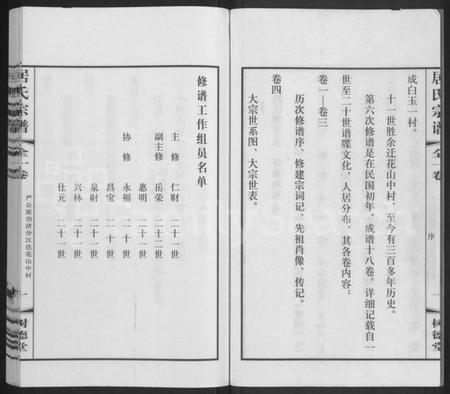 居氏宗谱 全一卷
序
一
树德堂
成白玉一村。
十一世胜余迁花山中村，至今有三百多年历史。
第六次修谱是在民国初年。成谱十八卷。详细记载自一
世至二十世谱牒文化，人居分布，其各卷内容：
卷一——卷三
历次修谱序、修建宗词记、先祖肖像、传记。
卷四
大宗世系图、大宗世表。
修谱工作组员名单
主修 仁财 二十一世
副主修 岳荣 二十二世
惠明 二十一世
协修 永福 二十一世
昌宝 二十世
泉财 二十一世
兴林 二十一世
仕元 二十一世
居氏宗谱 全一卷
严公派伯济分江邑花山中村
一
树德堂